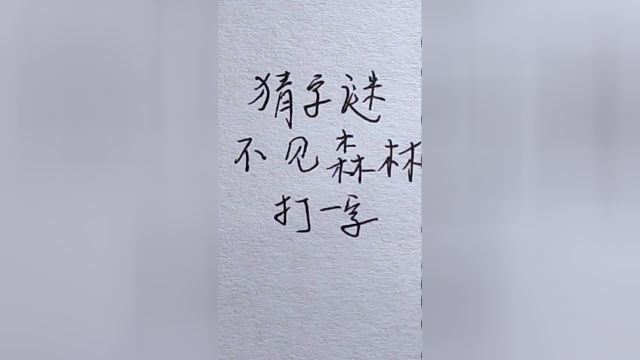 猜字谜
不见森林
打一字